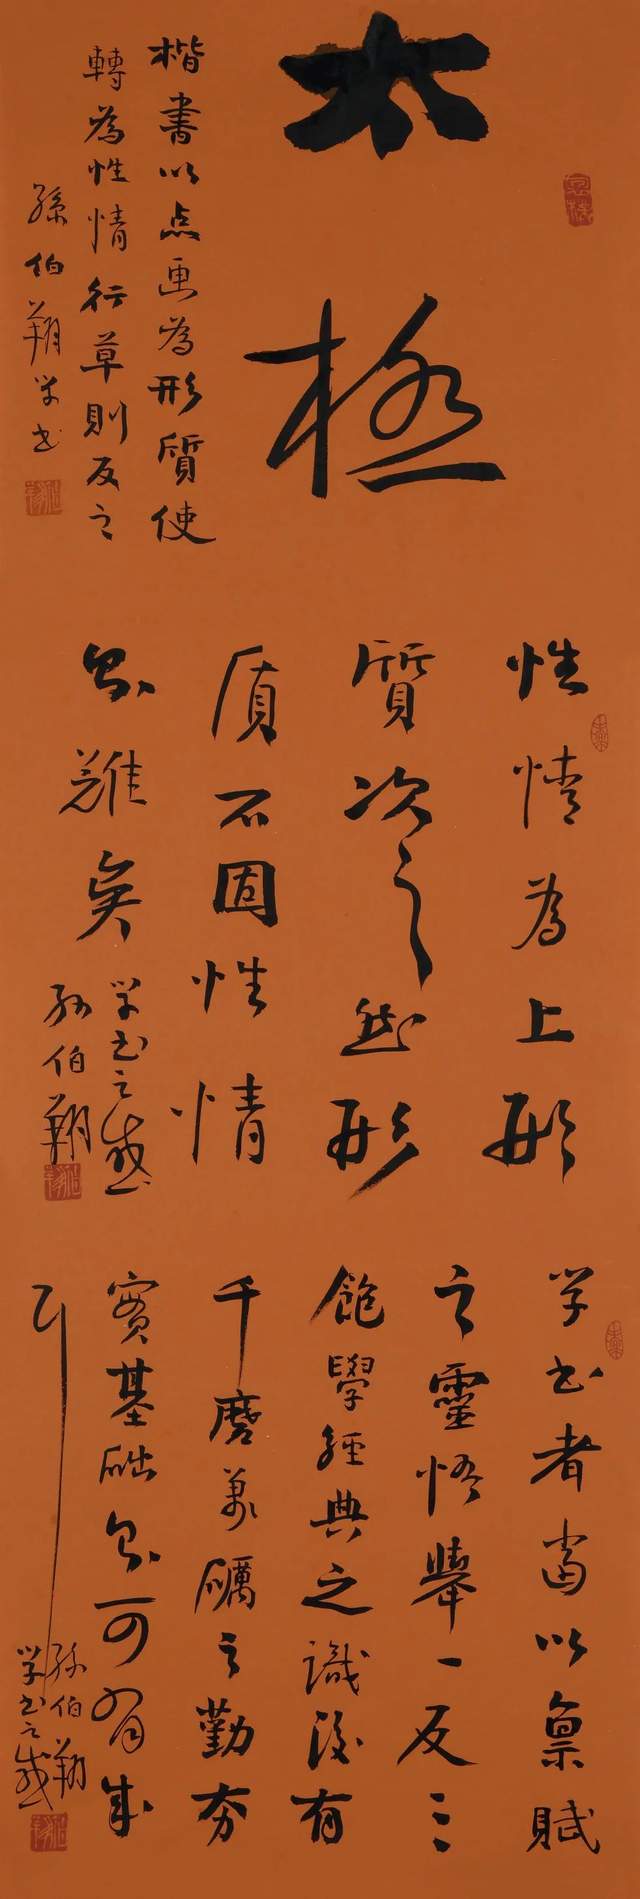 太
極
楷書以点画為形質使
轉為性情行草則反之
孫伯翔学書
性情為上形
質次之然形
質不固性情
難矣
学書之感
孫伯翔
学書者當以禀賦
之靈悟舉一反三
飽學經典之識後有
千磨萬礪之勤夯
實基础可有成
也
孫伯翔
学書之感